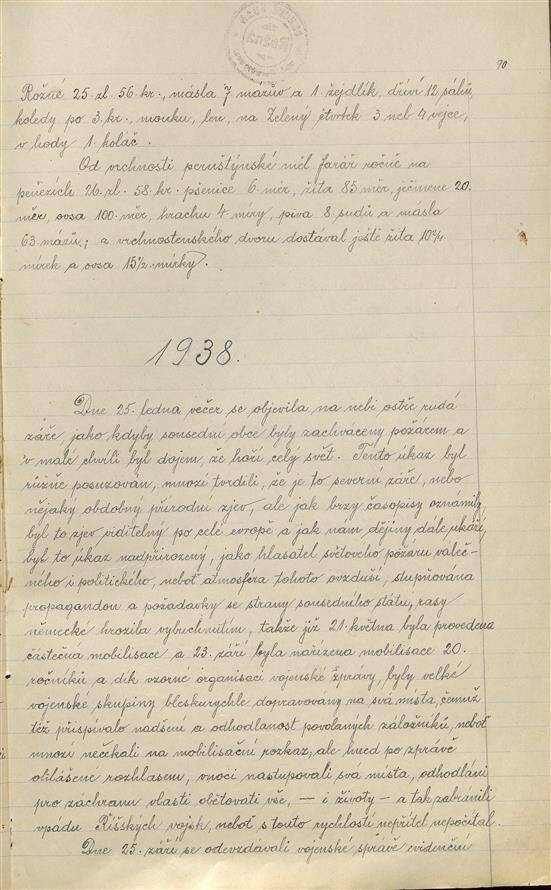 90
Rožné 25. zl. 56. kr., másla 7 mázův a 1. žejdlík, dříví 12 sáhů,
koledy po 3. kr. mouku, len, na Zelený čtvrtek 3 neb 4 vejce,
v hody 1. koláč.
Od vrchnosti pernštýnské měl farář ročně na
penězích 26. zl. 58. kr. pšenice 6. měr, žita 85 měr, ječmene 20.
měr, ovsa 100. měr, hrachu 4. míry, piva 8. sudů a másla
63. mázů; z vrchnostenského dvoru dostával ještě žita 10¾.
mírek a ovsa 15½. mírky.
1938.
Dne 25. ledna večer se objevila na nebi ostře rudá
záře, jako kdyby sousední obce byly zachváceny požárem a
v malé chvíli byl dojem, že hoří celý svět. Tento úkaz byl
různě posuzován, mnozí tvrdili, že je to severní záře, nebo
nějaký obdobný přírodní zjev, ale jak brzy časopisy oznámily
byl to zjev viditelný po celé evropě a jak nám dějiny dále ukáží,
byl to úkaz nadpřirozený, jako hlasatel světového požáru váleč-
ného i politického, neboť atmosféra tohoto ovzduší, stupňována
propagandou a požadavky se strany sousedního státu, rasy
německé hrozila vybuchnutím, takže již 21. května byla provedena
částečná mobilisace a 23. září byla nařízena mobilisace 20.
ročníků a dík vzorné organisaci vojenské správy, byly velké
vojenské skupiny bleskurychle dopravovány na svá místa, čemuž
též přispívalo nadšení a odhodlanost povolaných záložníků, neboť
mnozí nečekali na mobilisační rozkaz, ale hned po zprávě
ohlášené rozhlasem, v noci nastupovali svá místa, odhodláni
pro záchranu vlasti obětovati vše, — i životy — a tak zabránili
vpádu Říšských vojsk, neboť s touto rychlostí nepřítel nepočítal.
Dne 25. září se odevzdávali vojenské správě evidenční